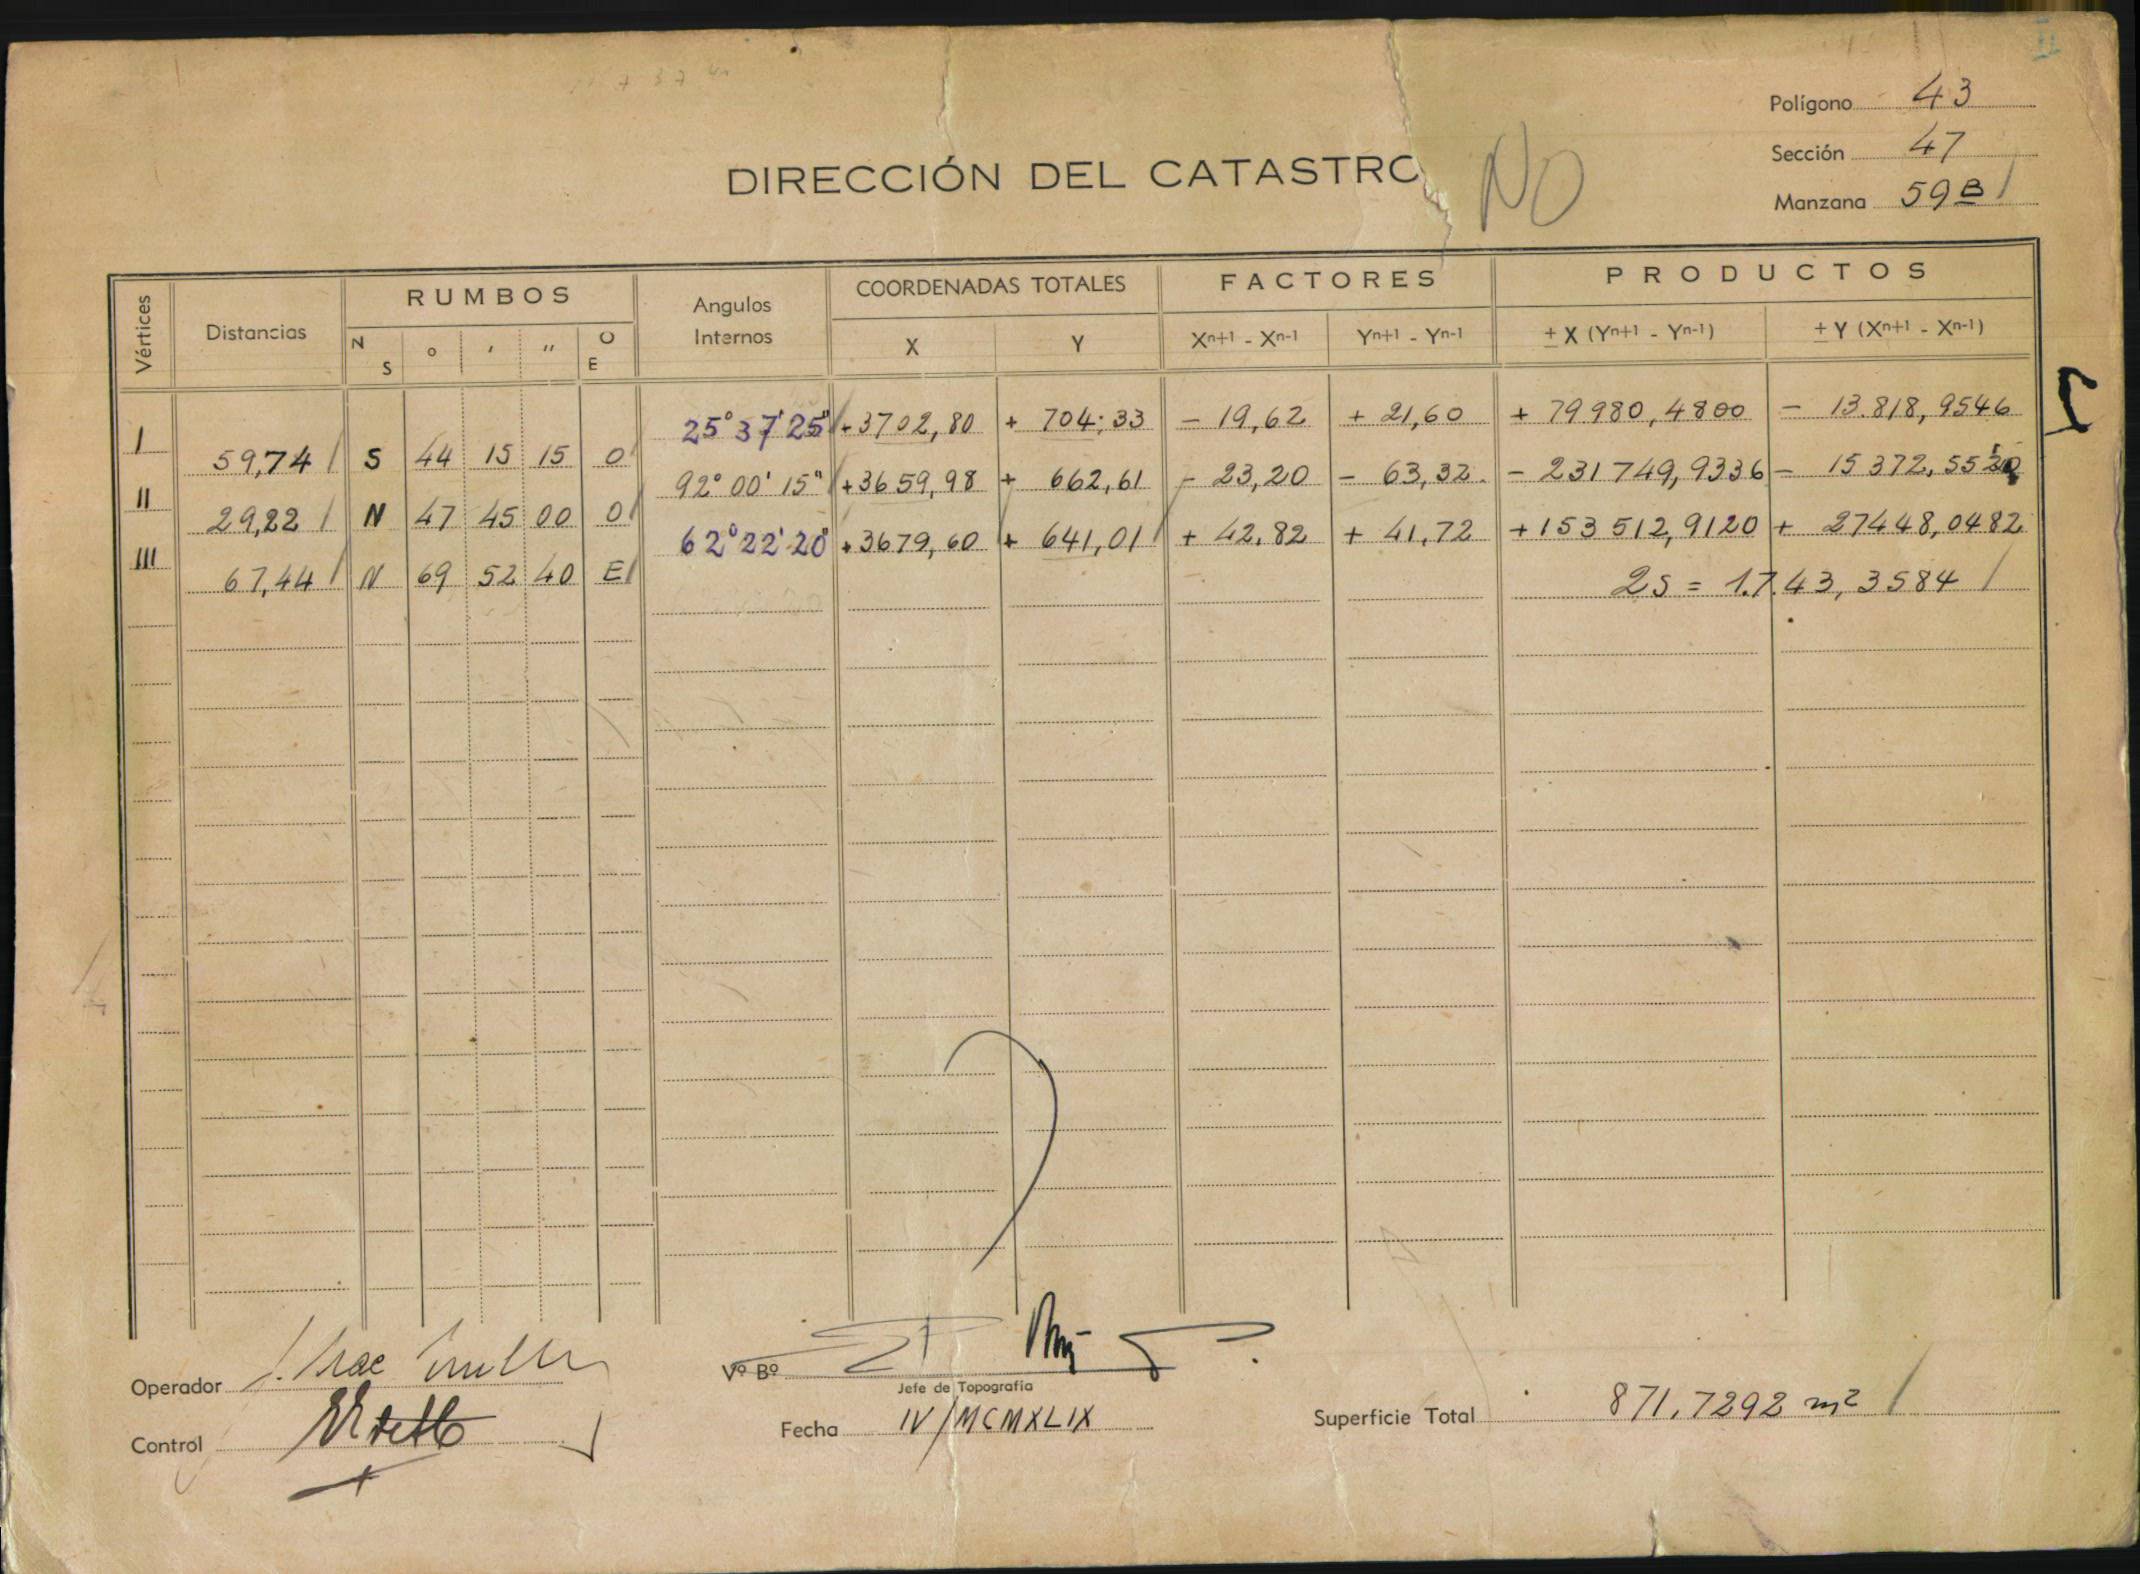 Polígono 43
Sección 47
Manzana 59 B
DIRECCIÓN DEL CATASTRO NO
Vértices Distancias RUMBOS Angulos Internos COORDENADAS TOTALES FACTORES PRODUCTOS
N S ° ' " O E X Y Xn+1 - Xn-1 Yn+1 - Yn-1 ± X (Yn+1 - Yn-1) ± Y (Xn+1 - Xn-1)
I 25° 37' 25" +3702,80 + 704,33 - 19,62 + 21,60 + 79980,4800 - 13.818,9546
59,74 S 44 15 15 O
II 92° 00' 15" +3659,98 + 662,61 - 23,20 - 63,32 - 231749,9336 - 15372,5520
29,22 N 47 45 00 O
III 62° 22' 20" +3679,60 + 641,01 + 42,82 + 41,72 + 153512,9120 + 27448,0482
67,44 N 69 52 40 E
2S = 1.743,3584
Operador
Vº Bº
Jefe de Topografía
Control
Fecha IV/MCMXLIX
Superficie Total 871,7292 m²